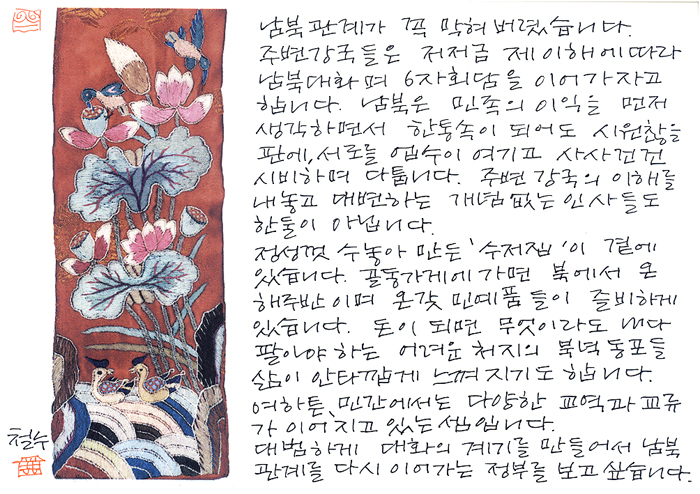 남북관계가 꼭 막혀버렸습니다.
주변강국들은 저저금 제이해에따라
남북대화며 6자회담을 이어가자고
합니다. 남북은 민족의 이익을 먼저
생각하면서 한통속이 되어도 시원찮을
판에, 서로들 업수이 여기고 사사건건
시비하며 다툽니다. 주변강국의 이해를
내놓고 대변하는 개념없는 인사들도
한둘이 아닙니다.
정성껏 수놓아 만든 '수저집'이 곁에
있습니다. 골동가게에가면 북에서 온
해주반이며 온갖 민예품들이 즐비하게
있습니다. 돈이 되면 무엇이라도 내다
팔아야 하는 어려운 처지의 북녘동포들
삶이 안타깝게 느껴지기도 합니다.
여하튼, 민간에서는 다양한 교역과 교류
가 이어지고 있는 셈입니다.
대범하게 대화의 계기를 만들어서 남북
관계를 다시 이어가는 정부를 보고 싶습니다.
철수